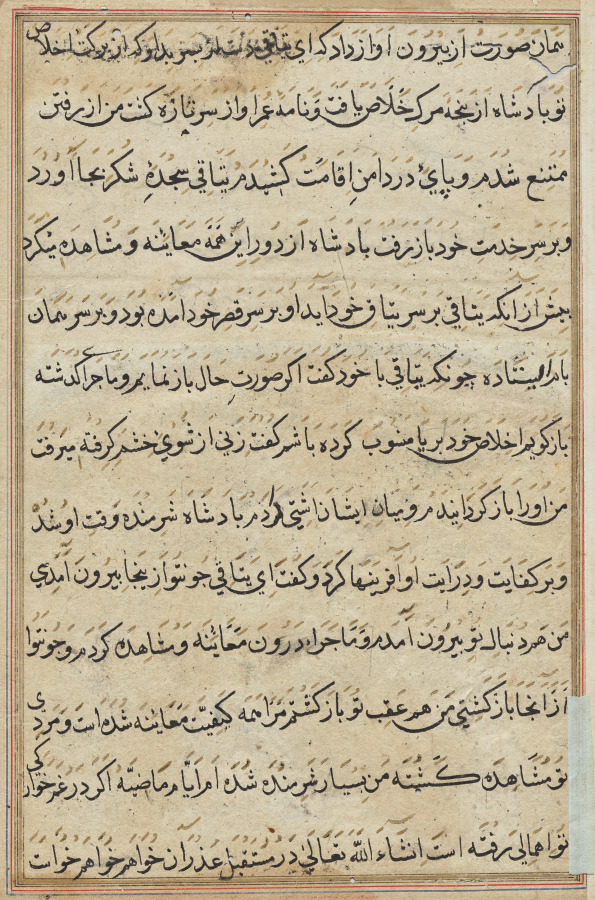 همان صورت از بیرون اواز داد که ای یتاقی
تو بادشاه از پنجه مرک خلاص یافت و نامه عمر او از سر تازه کشت من از رفتن
ممتنع شدم و پای در دامن اقامت کشیدم یتاقی سجدهٔ شکر بجا آورد
و بر سر خدمت خود باز رفت بادشاه از دور این همه معاینه و مشاهده میکرد
پیش از انکه یتاقی بر سر یتاق خود آید او بر سر قصر خود آمده بود و بر سر همان
بام ایستاده چونکه یتاقی با خود کفت اکر صورت حال باز نمایم و ماجرا کذشته
باز کویم اخلاص خود بریا منسوب کرده باشم کفت زنی از شوی خشم کرفته میرفت
من او را باز کردانیدم و میان ایشان اشتی کردم بادشاه شرمنده وقت او شد
و بر کفایت و درایت او آفرینها کرد و کفت ای یتاقی چون تو از ینجا بیرون آمدی
من هم دنبال تو بیرون آمدم و ماجرا درون معاینه و مشاهده کردم و چون تو
از آنجا باز کشتی من هم عقب تو باز کشتم مرا همه کیفیت معاینه شده است و مردی
تو مشاهده کشته من بسیار شرمنده شده ام ایام ماضیه اکر در غمخوارکی
تو اهمالی رفته است انشاء الله تعالی در مستقبل عذر ان خواهم خواهم خواست